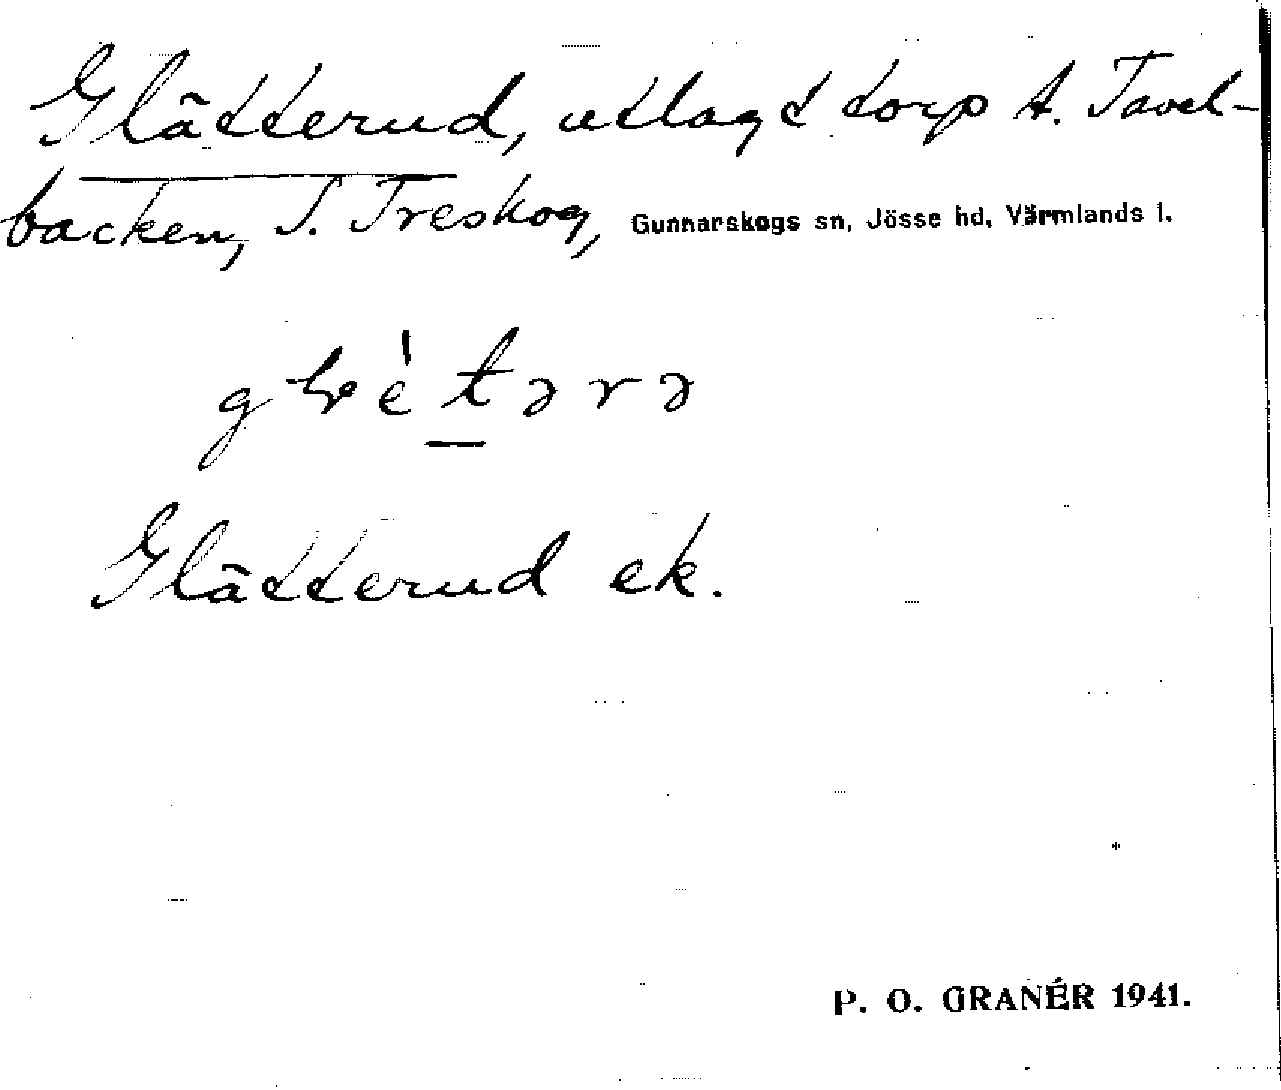 Glätterud, utlagt torp t. Tavel-
backen, S. Treskog, Gunnarskogs sn, Jösse hd, Värmlands l.
Glätterud ek.
P. O. GRANÉR 1941.